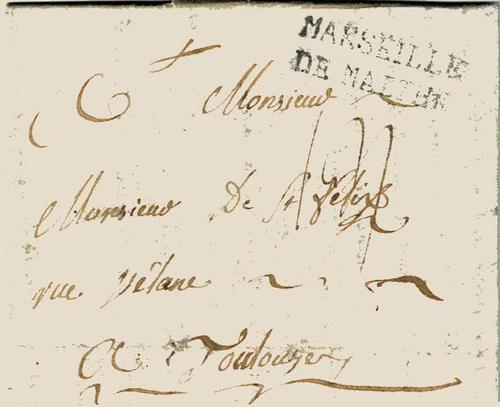 MARSEILLE
DE MALTHE
A Monsieur
Monsieur De St Felix
rue vélane
A Toulouze